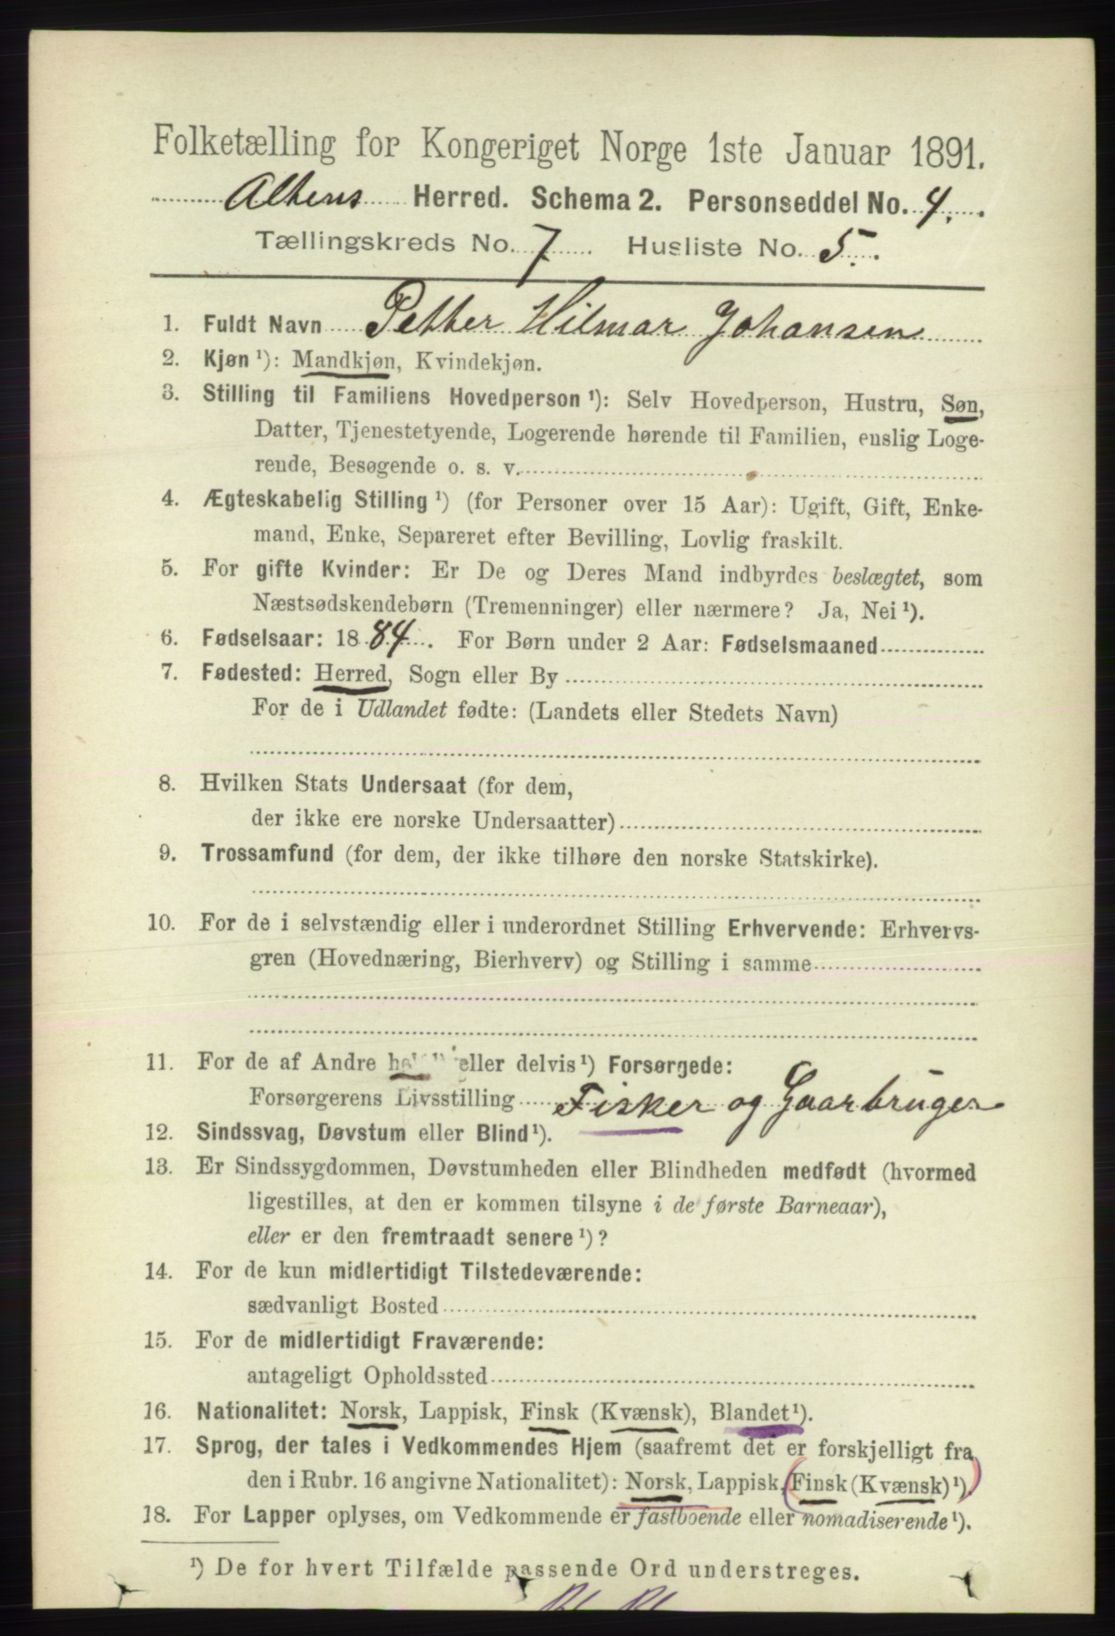 Folketælling for Kongeriget Norge 1ste Januar 1891.
Altens Herred. Schema 2. Personseddel No. 4.
Tællingskreds No. 7 Husliste No. 5.
1. Fuldt Navn Petter Hilmar Johansen
2. Kjøn ¹): Mandkjøn, Kvindekjøn.
3. Stilling til Familiens Hovedperson ¹): Selv Hovedperson, Hustru, Søn,
Datter, Tjenestetyende, Logerende hørende til Familien, enslig Loge-
rende, Besøgende o. s. v.
4. Ægteskabelig Stilling ¹) (for Personer over 15 Aar): Ugift, Gift, Enke-
mand, Enke, Separeret efter Bevilling, Lovlig fraskilt.
5. For gifte Kvinder: Er De og Deres Mand indbyrdes beslægtet, som
Næstsødskendebørn (Tremenninger) eller nærmere? Ja, Nei ¹).
6. Fødselsaar: 1884. For Børn under 2 Aar: Fødselsmaaned
7. Fødested: Herred, Sogn eller By
For de i Udlandet fødte: (Landets eller Stedets Navn)
8. Hvilken Stats Undersaat (for dem,
der ikke ere norske Undersaatter)
9. Trossamfund (for dem, der ikke tilhøre den norske Statskirke).
10. For de i selvstændig eller i underordnet Stilling Erhvervende: Erhvervs-
gren (Hovednæring, Bierhverv) og Stilling i samme
11. For de af Andre eller delvis ¹) Forsørgede:
Forsørgerens Livsstilling Fisker og Gaarbruger
12. Sindssvag, Døvstum eller Blind ¹).
13. Er Sindssygdommen, Døvstumheden eller Blindheden medfødt (hvormed
ligestilles, at den er kommen tilsyne i de første Barneaar),
eller er den fremtraadt senere ¹)?
14. For de kun midlertidigt Tilstedeværende:
sædvanligt Bosted
15. For de midlertidigt Fraværende:
antageligt Opholdssted
16. Nationalitet: Norsk, Lappisk, Finsk (Kvænsk), Blandet ¹).
17. Sprog, der tales i Vedkommendes Hjem (saafremt det er forskjelligt fra
den i Rubr. 16 angivne Nationalitet): Norsk, Lappisk, Finsk (Kvænsk) ¹).
18. For Lapper oplyses, om Vedkommende er fastboende eller nomadiserende ¹).
¹) De for hvert Tilfælde passende Ord understreges.